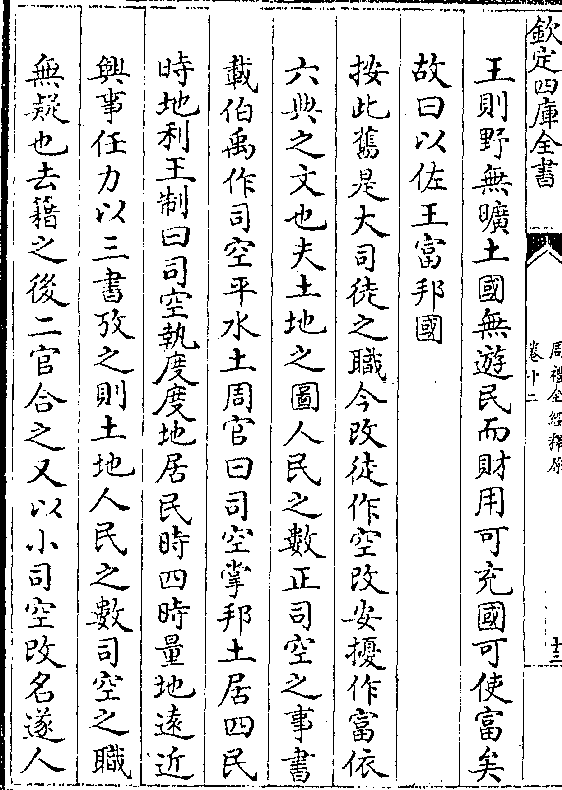 欽定四庫全書
周禮全經釋原
卷十二
十三
王則野無曠土國無遊民而財用可充國可使富矣
故曰以佐王富邦國
按此舊是大司徒之職今改徒作空改安擾作富依
六典之文也夫土地之圖人民之數正司空之事書
載伯禹作司空平水土周官曰司空掌邦土居四民
時地利王制曰司空執度度地居民時四時量地遠近
興事任力以三書攷之則土地人民之數司空之職
無疑也去籍之後二官合之又以小司空改名遂人